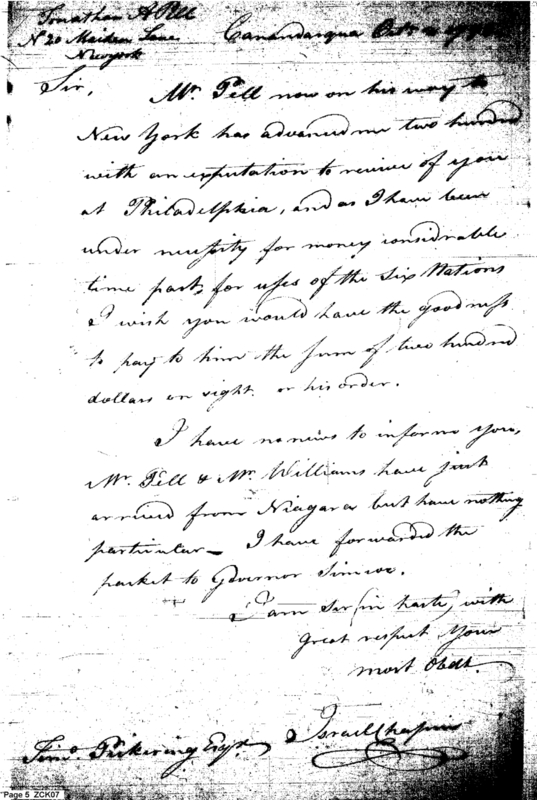 Jonathan A Pell
No 20 Maiden Lane
Newyork
Canandarqua Octr
Sir,
Mr. Pell now on his way to
New York has advanced me two hundred
with an expectation to receive of you
at Philadelphia, and as I have been
under necessity for money considrable
time past, for uses of the Six Nations
I wish you would have the goodness
to pay to him the sum of two hundred
dollars on sight. or his order.
I have no news to inform you,
Mr. Pell & Mr. Williams have just
arrived from Niagara but have nothing
particular— I have forwarded the
packet to Governor Simcoe.
I am Sir (in haste) with
great respect Your
most Obdt.
Israel Chapin
Timo. Pickering Esqr.
Page 5 ZCK07